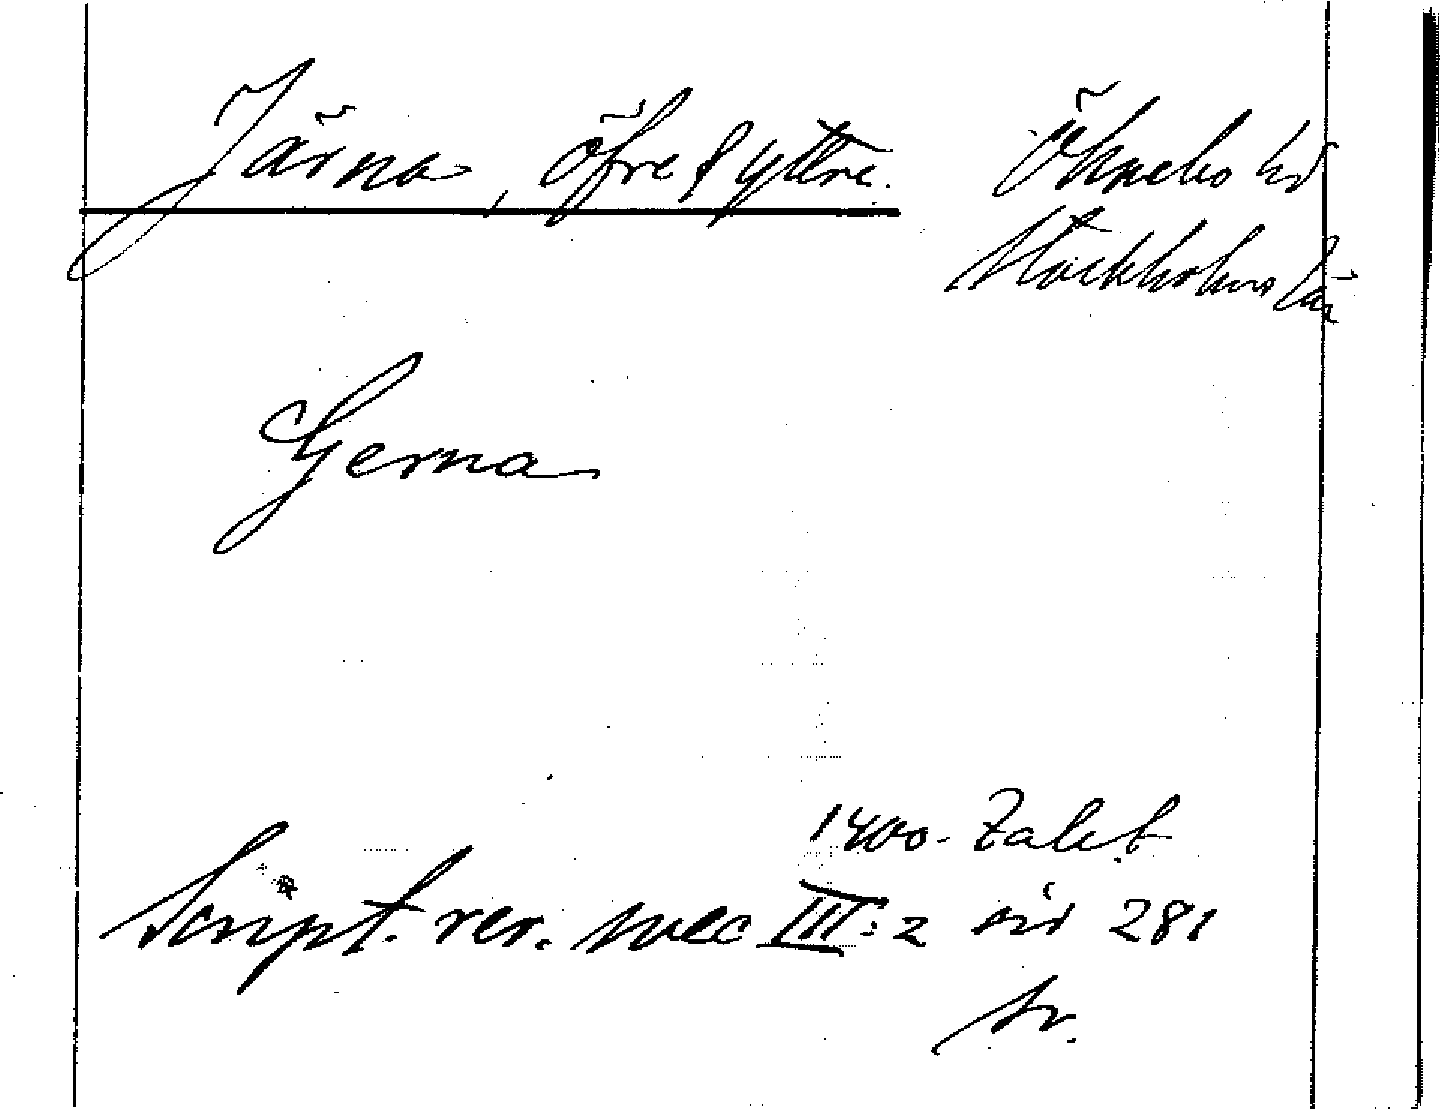 Järna, Öfre & yttre. Öknebo hd
Stockholms län
Gerna
1400-talet
Script. rer. svec III:2 sid 281
sv.